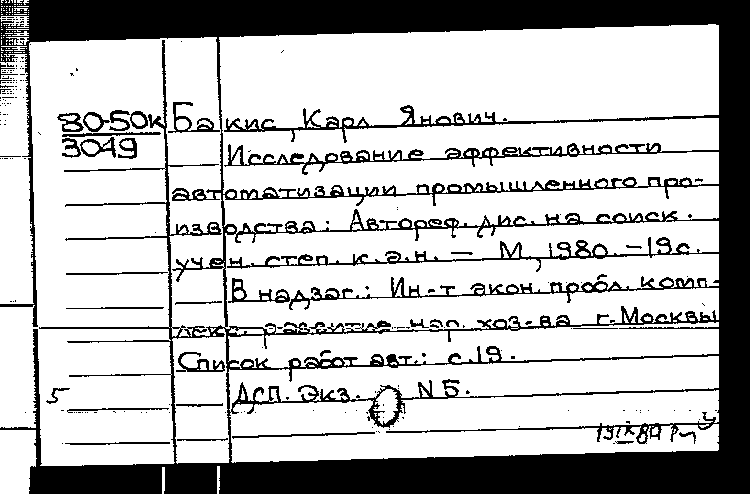 80-50к Бакис, Карл Янович.
3049 Исследование эффективности
автоматизации промышленного про-
изводства: Автореф. дис. на соиск.
учен. степ. к.э.н. — М, 1980. – 19с.
В надзаг.: Ин-т экон. пробл. комп-
лекс. развития нар. хоз-ва г. Москвы
Список работ авт.: с.19.
5 ДСП. Экз. N 5.